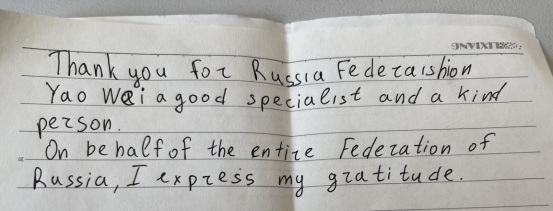 Thank you for Russia Federaishion
Yao Wei a good specialist and a kind
person.
On behalf of the entire Federation of
Russia, I express my gratitude.